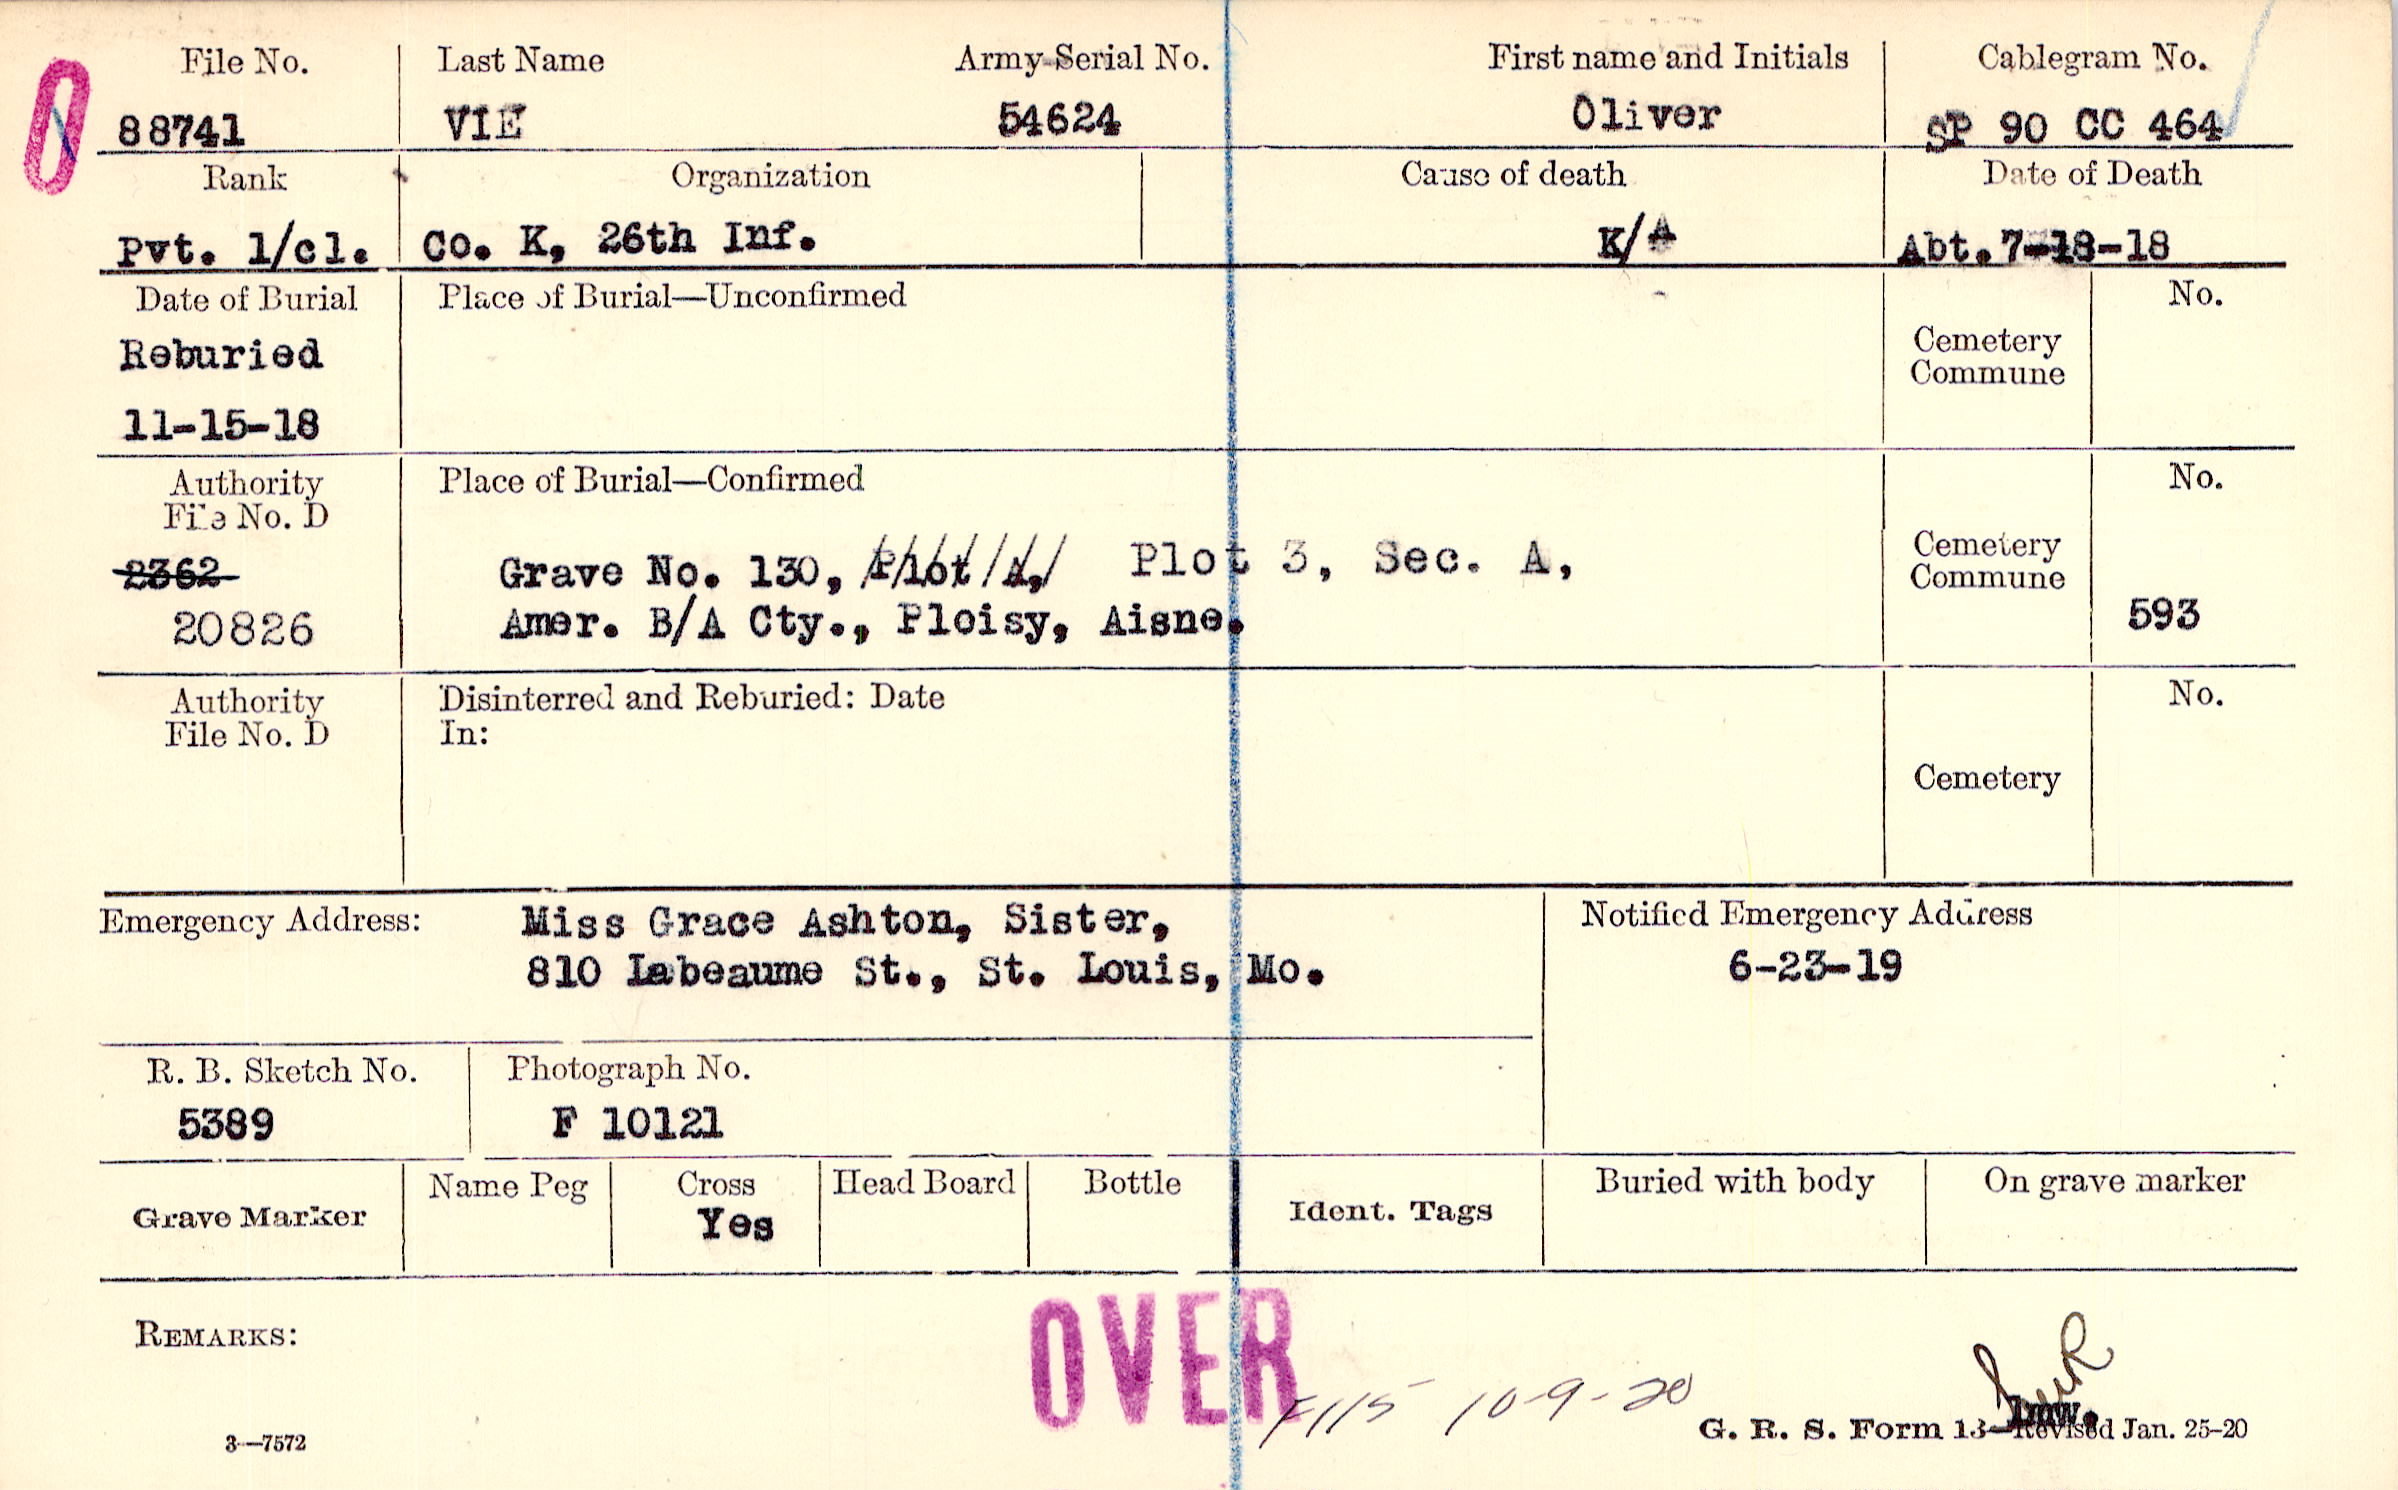 File No.
Last Name
Army Serial No.
First name and Initials
Cablegram No.
88741
VIE
54624
Oliver
SP 90 CC 464
Rank
Organization
Cause of death
Date of Death
Pvt. 1/cl.
Co. K, 26th Inf.
K/A
Abt. 7-18-18
Date of Burial
Place of Burial—Unconfirmed
No.
Reburied
11-15-18
Cemetery
Commune
Authority
File No. D
Place of Burial—Confirmed
No.
2362
20826
Grave No. 130, Plot A, Plot 3, Sec. A,
Amer. B/A Cty., Ploisy, Aisne.
Cemetery
Commune
593
Authority
File No. D
Disinterred and Reburied: Date
In:
No.
Cemetery
Emergency Address:
Miss Grace Ashton, Sister,
810 Labeaume St., St. Louis, Mo.
Notified Emergency Address
6-23-19
R. B. Sketch No.
Photograph No.
5389
F 10121
Grave Marker
Name Peg
Cross
Yes
Head Board
Bottle
Ident. Tags
Buried with body
On grave marker
REMARKS:
OVER
10-9-20
3—7572
G. R. S. Form 13—Revised Jan. 25-20